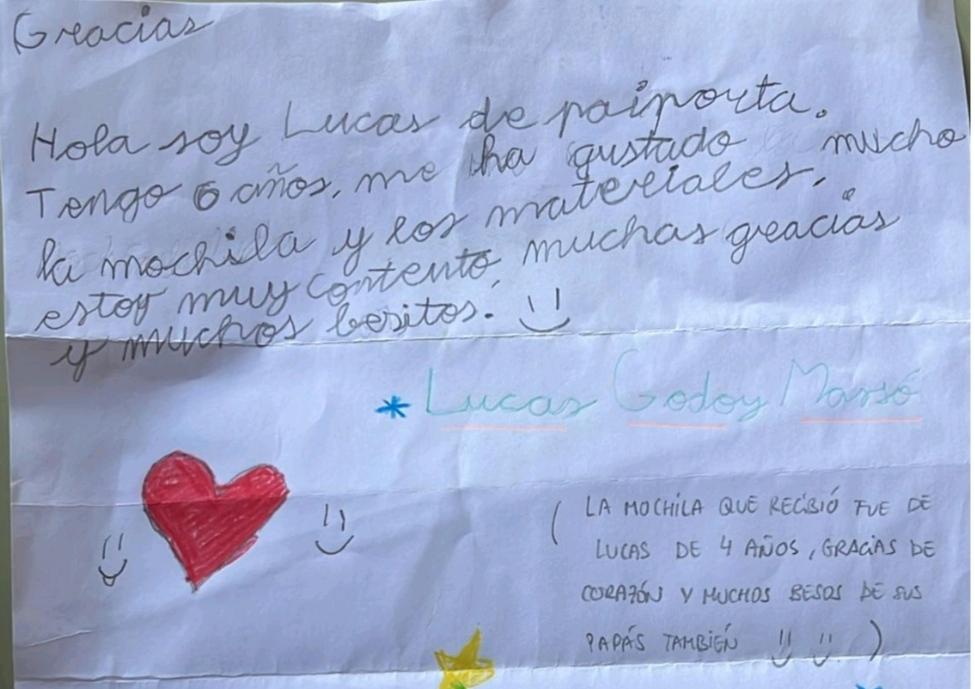 Gracias
Hola soy Lucas de paiporta.
Tengo 6 años, me ha gustado mucho
la mochila y los materiales,
estoy muy contento, muchas gracias
y muchos besitos.
* Lucas Godoy Massó
( LA MOCHILA QUE RECIBIÓ FUE DE
LUCAS DE 4 AÑOS, GRACIAS DE
CORAZÓN Y MUCHOS BESOS DE SUS
PAPÁS TAMBIÉN )